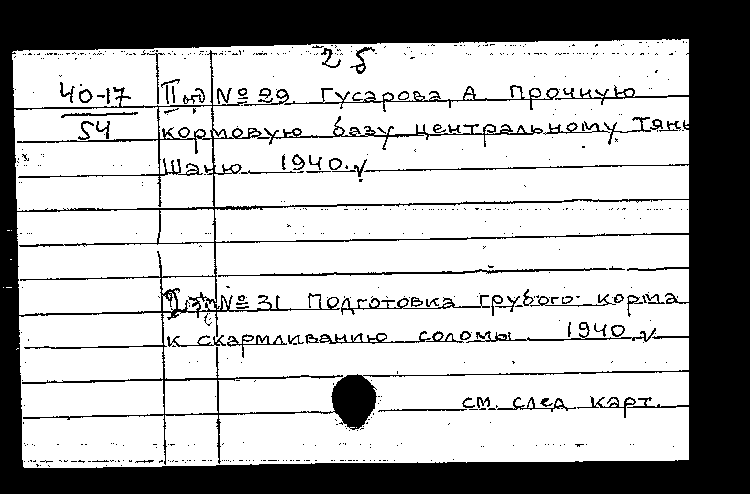 2б
40-17 Под № 29 Гусарова, А Прочную
54 кормовую базу центральному Тянь
Шаню 1940.
№ 31 Подготовка грубого корма
к скармливанию соломы 1940.
см. след карт.